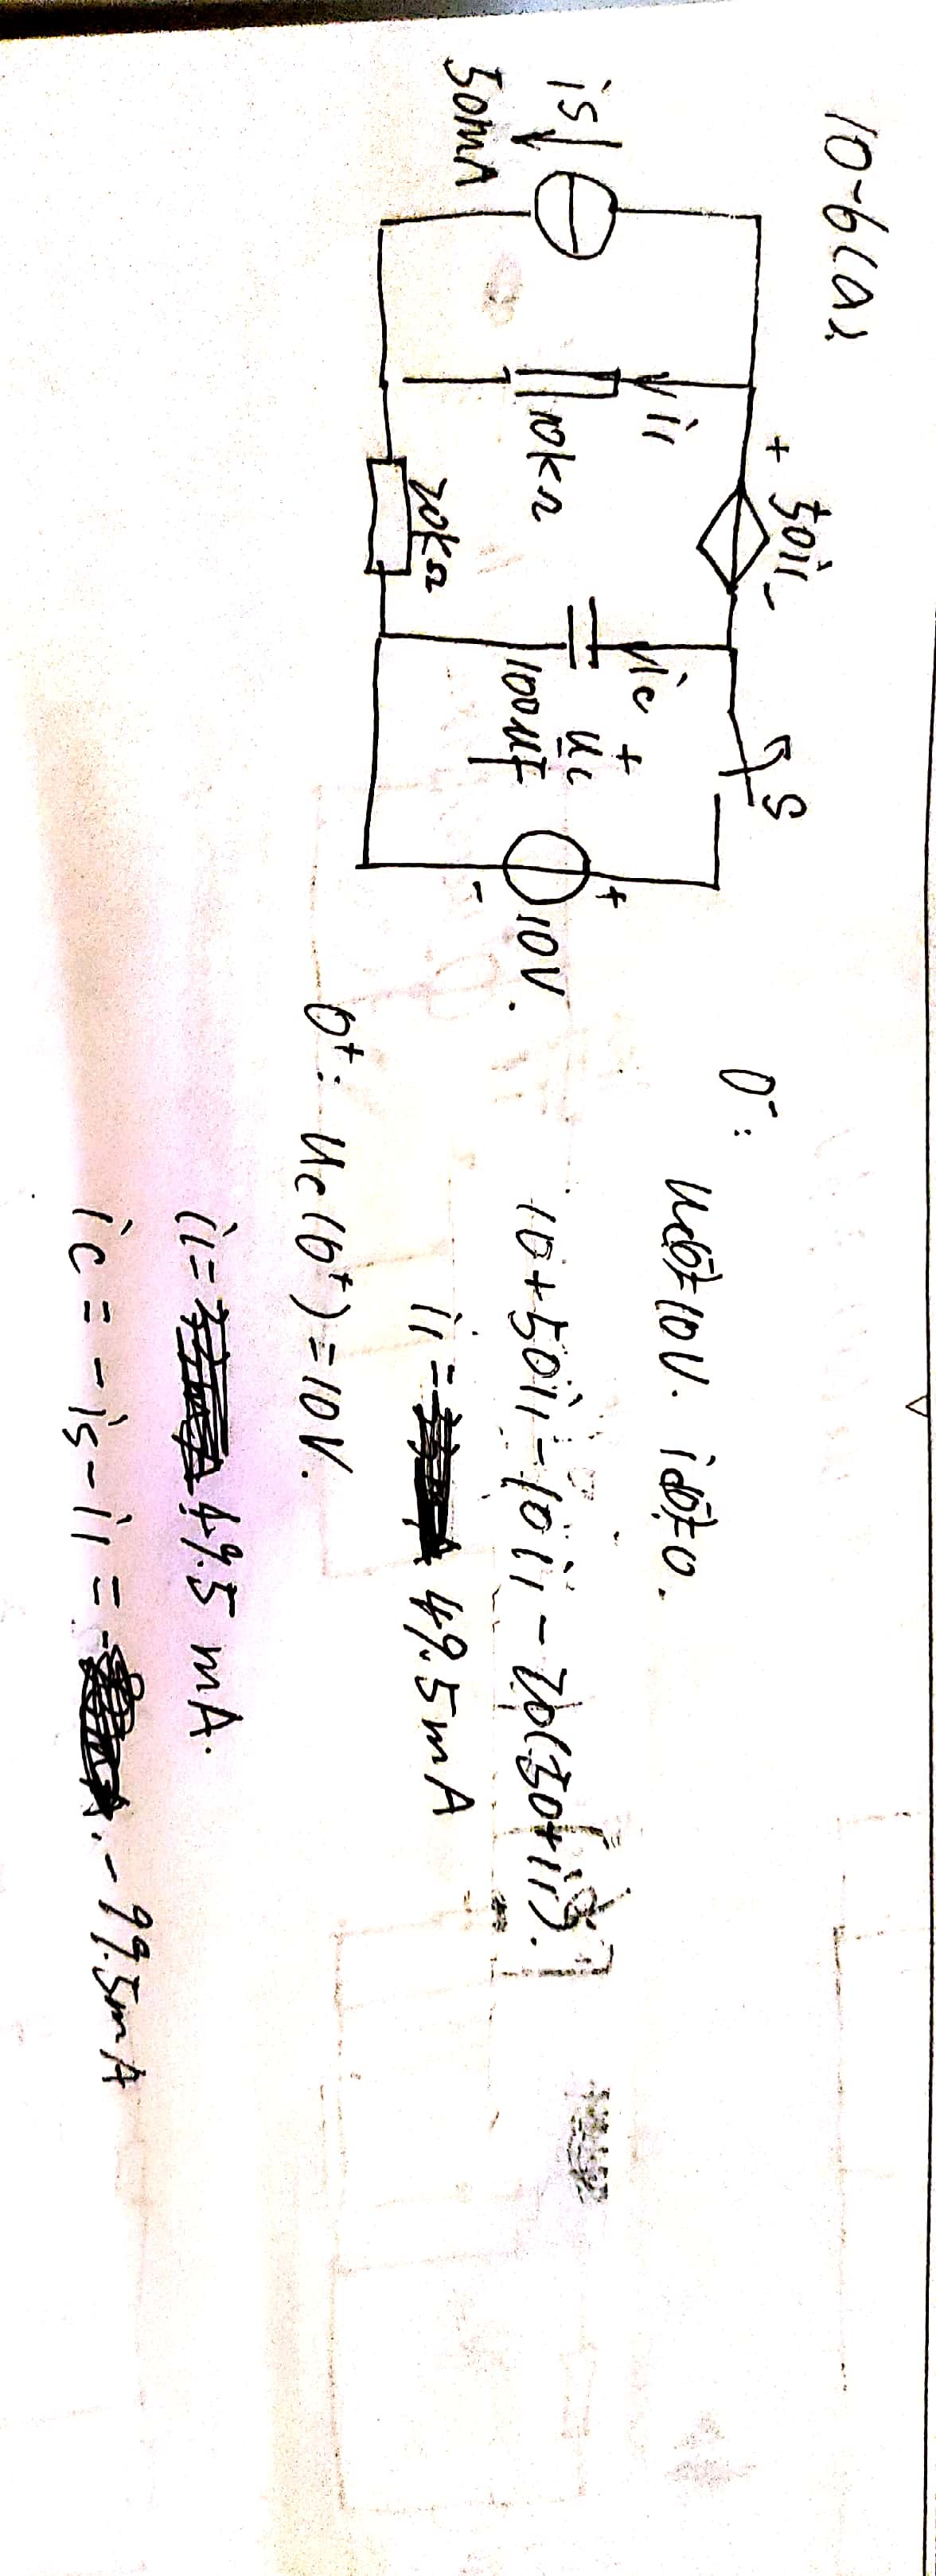 10-6(a)
+ 50i1 -
S
is
50mA
i1
10kΩ
ic
+
uc
-
100μF
+
10V.
-
20kΩ
0⁻:
uc(0⁻)=10V. ic(0⁻)=0.
10+50i1-10i1-20(50+i1).
i1= 49.5mA
0⁺: uc(0⁺)=10V.
i1= 49.5 mA.
ic = -is-i1 = -99.5mA